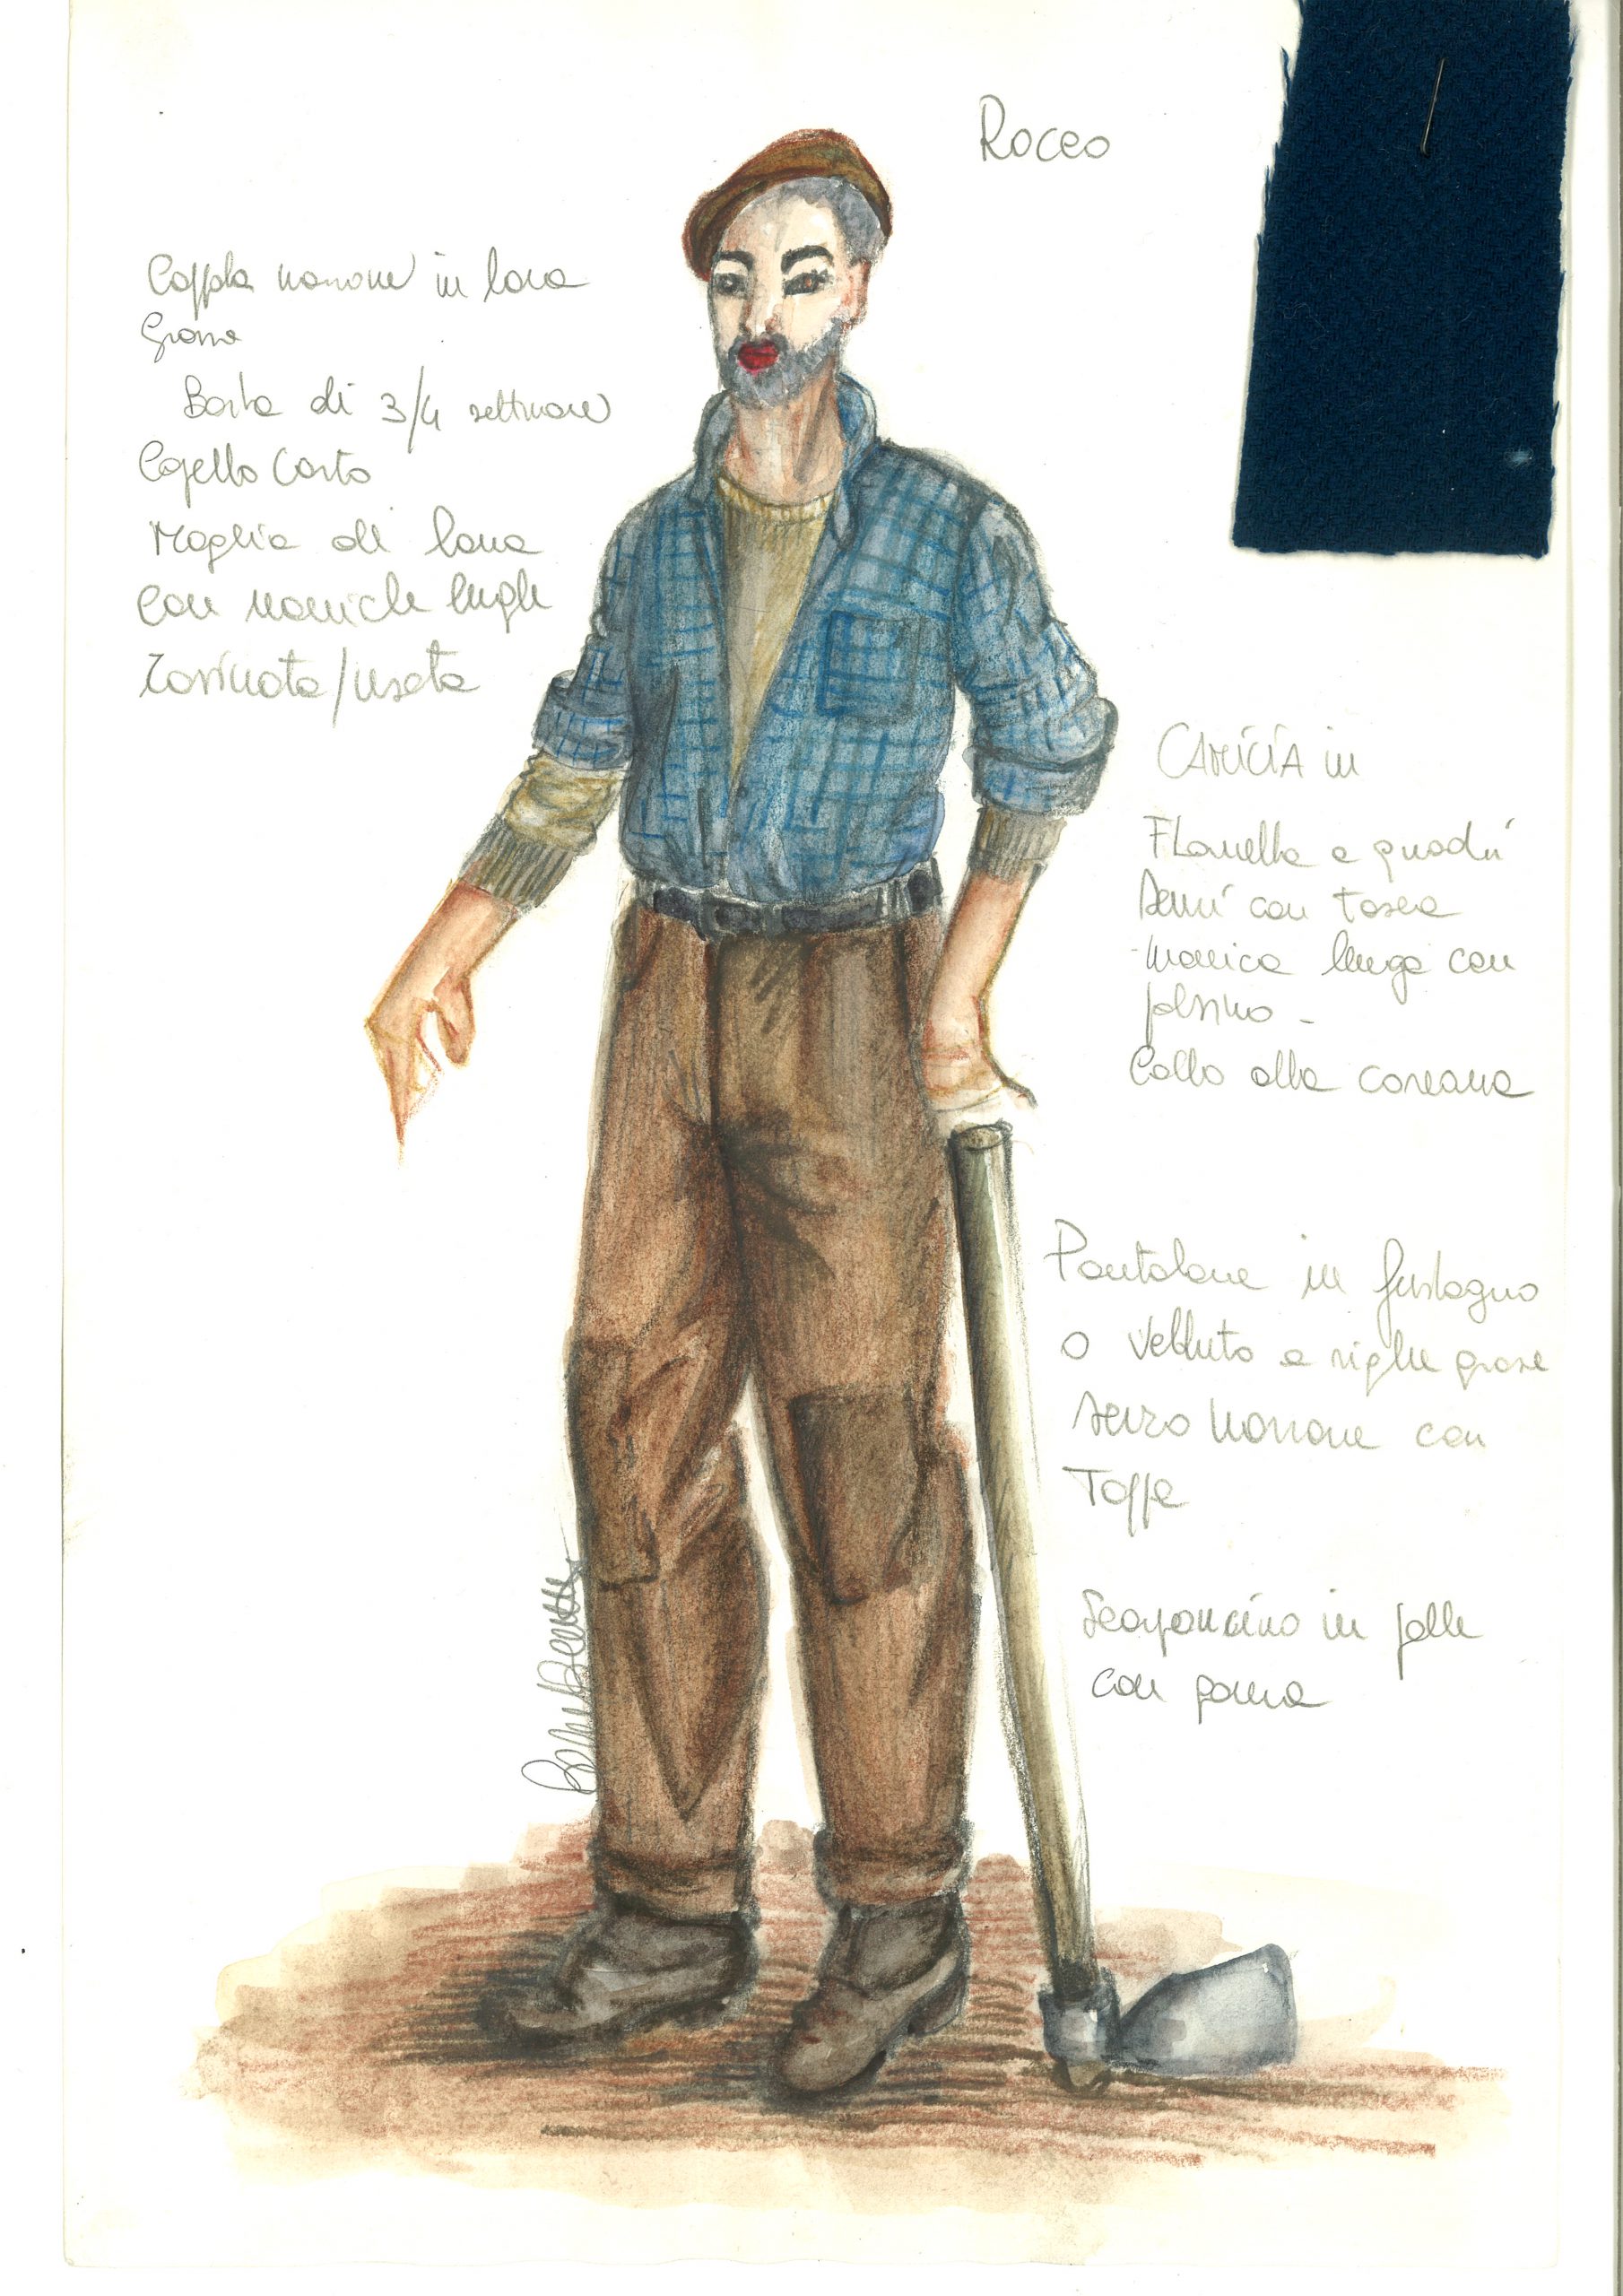 Rocco
Coppola marrone in lana
grossa
Barba di 3/4 settimane
Capello corto
Maglia di lana
con maniche lunghe
rovinata/usata
CAMICIA in
Flanella a quadri
Semi con tasca
manica lunga con
polsino -
Collo alla coreana
Pantalone in fustagno
o velluto a righe grosse
scuro marrone con
Toppe
Scarponcino in pelle
con gomma